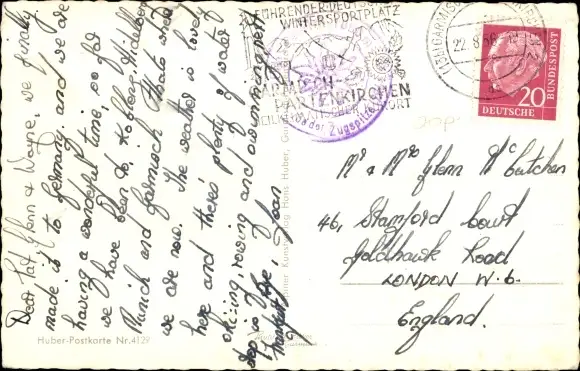 Dear Pat, Glenn & Wayne, we finally
made it to Germany and we are
having a wonderful time, so far
we have been to Koblenz, Heidelberg
Munich and Garmisch thats where
we are now. The weather is lovely
here and theres plenty of water
skiing, rowing and swimming. next
stop is
Joan
Huber-Postkarte Nr. 412
FÜHRENDER DEUTSCHER
WINTERSPORTPLATZ
GARMISCH-
PARTENKIRCHEN
HEILKLIMATISCHER KURORT
Bad der Zugspitze
22.8.56
20
DEUTSCHE
BUNDESPOST
Mr & Mrs Glenn McCutchen
46, Stamford Court
Goldhawk Road
LONDON W.6.
England.